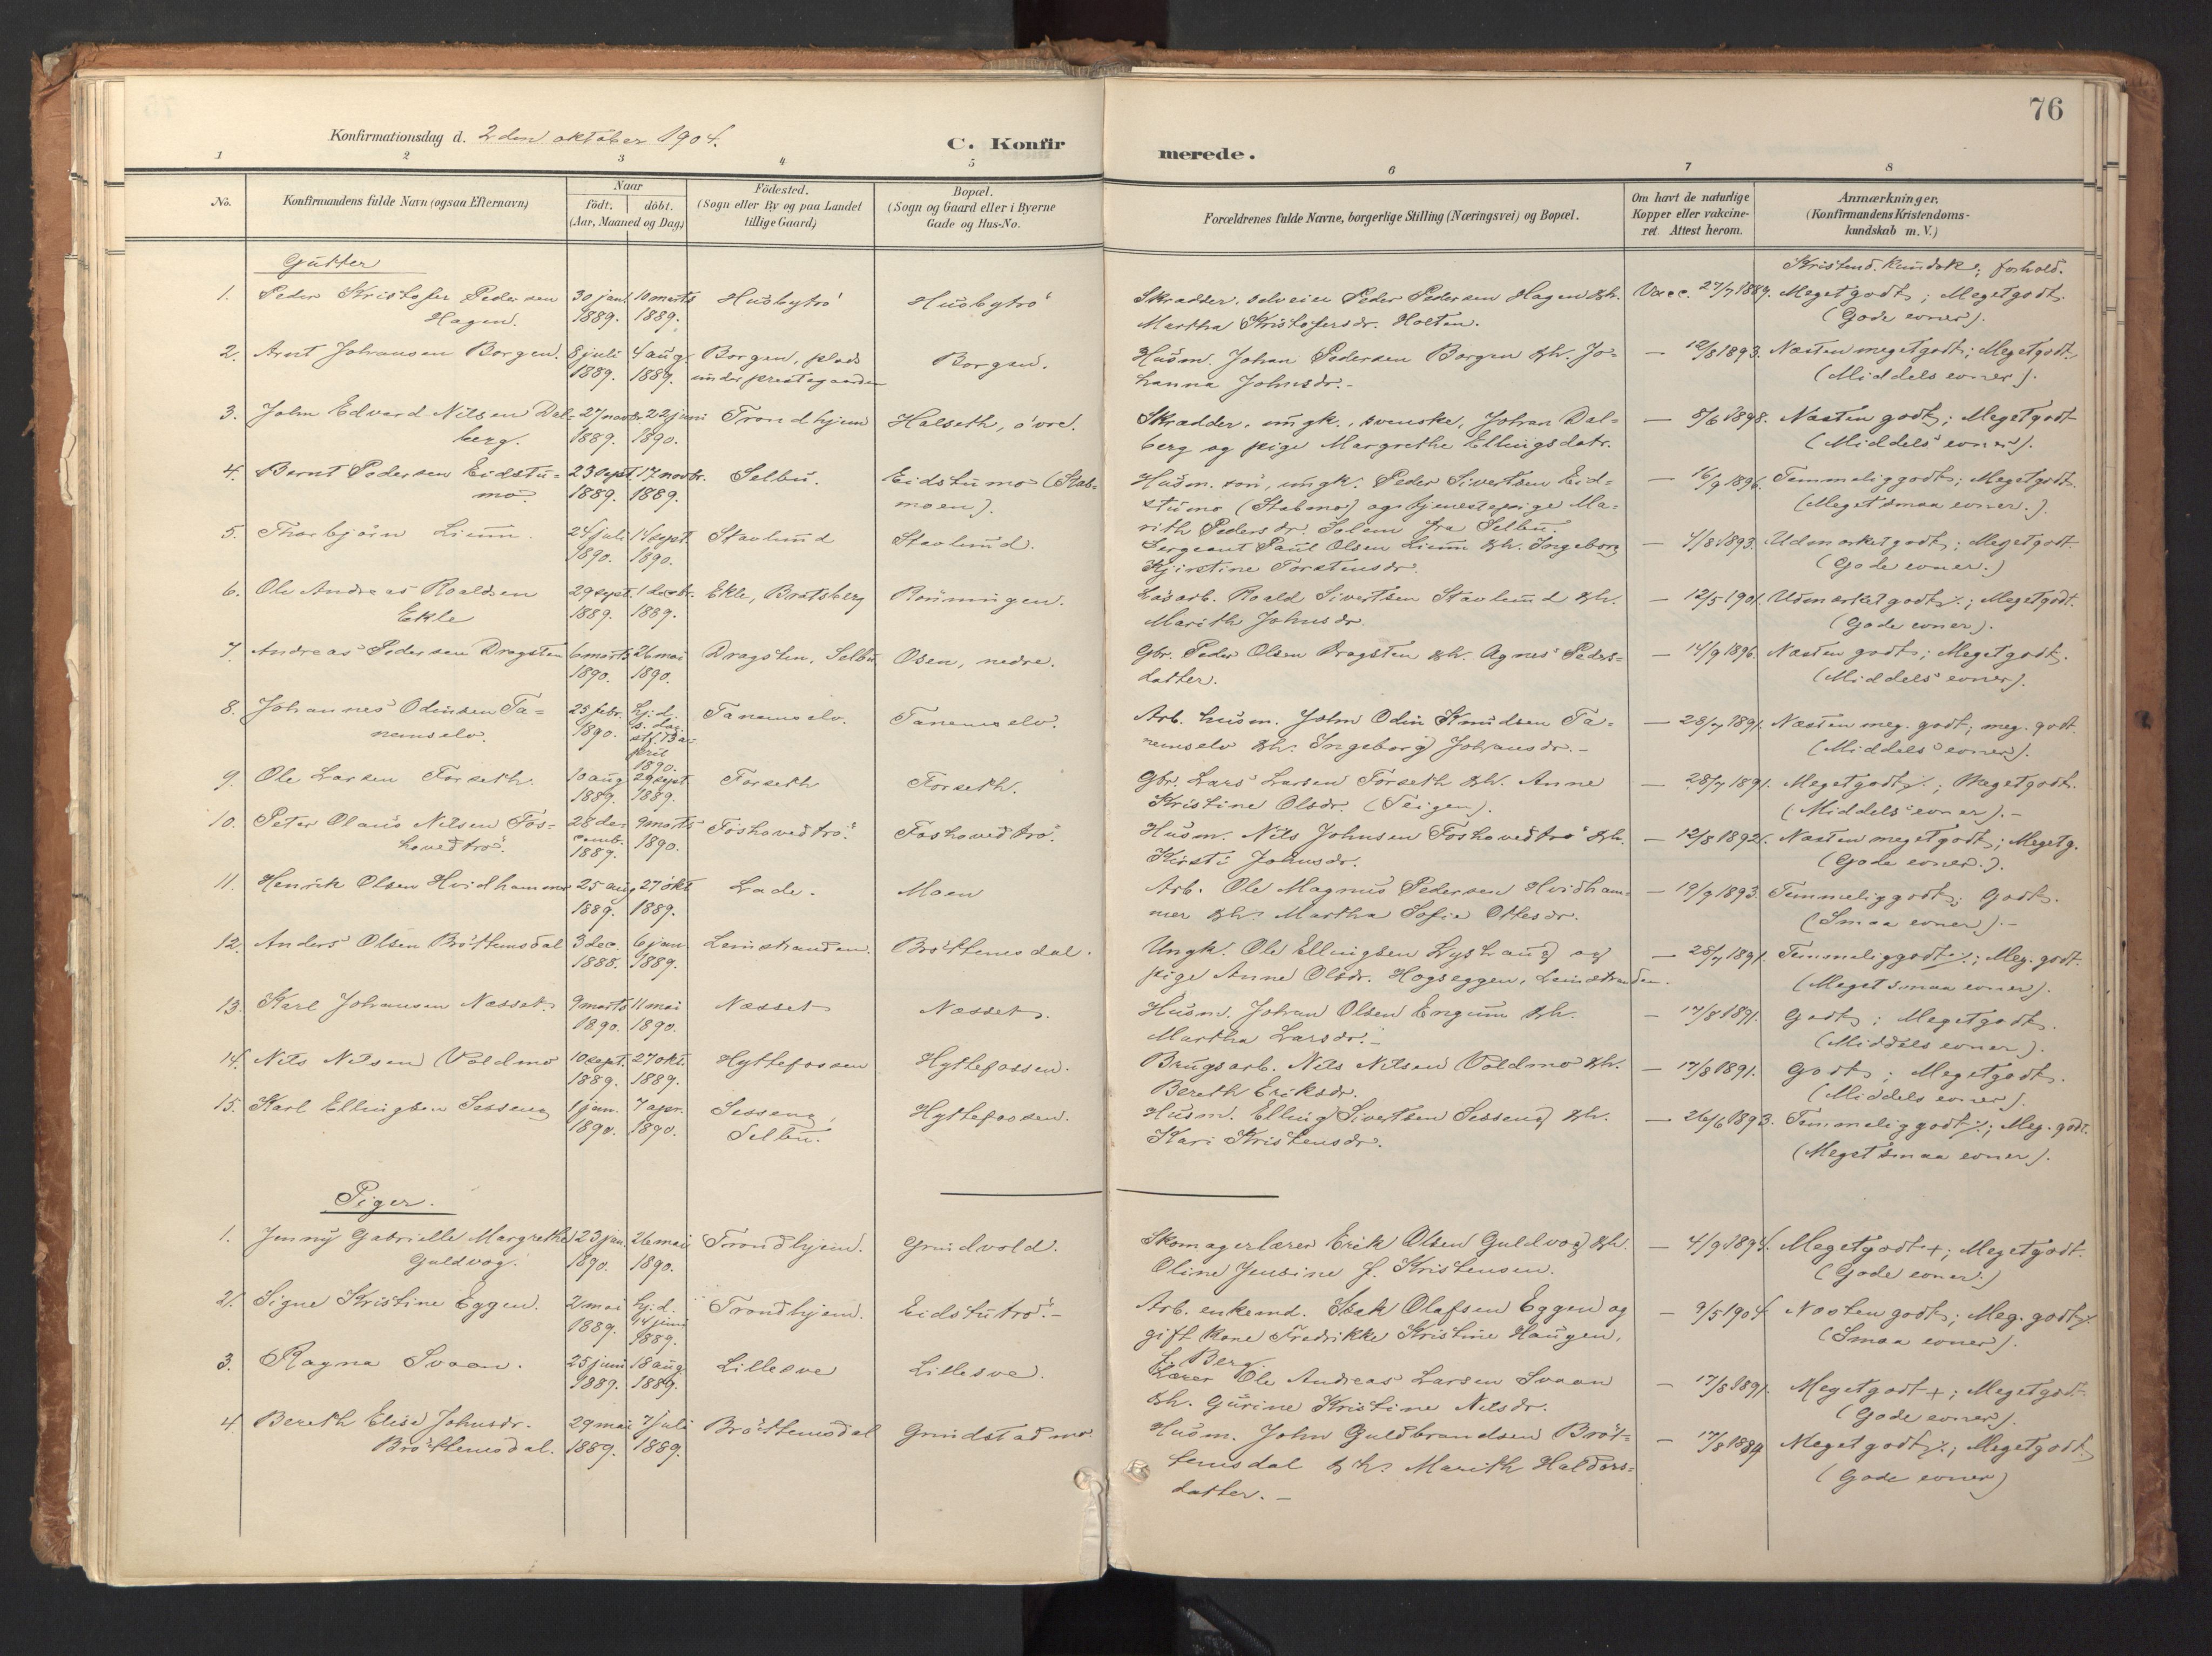 76
Konfirmationsdag d. 2den oktober 1904.
C. Konfir
merede.
1 2 3 4 5 6 7 8
No.
Konfirmandens fulde Navn (ogsaa Efternavn)
Naar
födt. döbt.
(Aar, Maaned og Dag)
Födested.
(Sogn eller By og paa Landet
tillige Gaard)
Bopæl.
(Sogn og Gaard eller i Byerne
Gade og Hus-No.
Forældrenes fulde Navne, borgerlige Stilling (Næringsvei) og Bopæl.
Om havt de naturlige
Kopper eller vakcine-
ret. Attest herom.
Anmærkninger.
(Konfirmandens Kristendoms-
kundskab m. V.)
Gutter
Kristend. kundsk.; forhold.
1. Peder Kristofer Pedersen 30 jan. 10 marts Husbytrö Husbytrö Skrædder, selveier Peder Pedersen Hagen & h. Vacc. 27/7 1889. Meget godt; Meget godt.
Hagen. 1889. 1889. Martha Kristofersdr. Holten. (Gode evner).
2. Arnt Johansen Borgen. 8 juli 4 aug. Borgen, plads Borgen. Husm. Johan Pedersen Borgen & h. Jo- — 12/8 1893. Næsten meget godt; Meget godt.
1889. 1889. under prestegaarden hanna Johnsdr. - (Middels evner).
3. John Edvard Nilsen Dal- 27 novbr. 22 juni Trondhjem Halseth, övre. Skrædder, ungk., svenske, Johan Dal- — 8/6 1898. Næsten godt; Meget godt
berg. 1889. 1890. berg og pige Margrethe Ellingsdatr. (Middels evner).
4. Bernt Pedersen Eidstu- 23 sept. 17 novbr. Selbu. Eidstumo (Stab- Husm. sön, ungk. Peder Sivertsen Eid- — 16/9 1896. Temmelig godt; Meget godt.
mo. 1889. 1889. moen). stumo (Stabmo) og tjenestepige Ma- (Meget smaa evner.).
rith Pedersdr. Solem fra Selbu.
5. Thorbjörn Lium. 24 juli 14 sept. Stavlund Stavlund. Sergeant Paul Olsen Lium & h. Ingeborg — 4/8 1893. Udmerket godt; Meget godt.
1890. 1890. Kjirstine Torstensdr. (Gode evner.)
6. Ole Andreas Roaldsen 29 sept. 1 decbr. Ekle, Bratsberg Rönningen. Lösarb. Roald Sivertsen Stavlund & h. — 12/5 1901. Udmerket godt ⁒; Meget godt.
Ekle 1889. 1889. Marith Johnsdr. (Gode evner).
7. Andreas Pedersen Dragsten 6 marts 26 mai Dragsten, Selbu Osen, nedre. Gbr. Peder Olsen Dragsten & h. Agnes Peders- — 14/9 1896. Næsten godt; Meget godt.
1890. 1890. datter. (Middels evner).
8. Johannes Odinsen Ta- 25 febr. hj.d. Tanemselv. Tanemselv. Arb. husm. John Odin Knudsen Ta- — 28/7 1891. Næsten meg. godt; meg. godt.
nemselv. 1890. s. dag stf. 13 april 1890. nemselv & h. Ingeborg Johansdr. - (Middels evner).
9. Ole Larsen Forseth. 10 aug 29 sept. Forseth Forseth. Gbr. Lars Larsen Forseth & h. Anne — 28/7 1891. Meget godt ⁒; Meget godt.
1889. 1889. Kristine Olsdr. (Teigen). (Middels evner). -
10. Peter Olaus Nilsen Fos- 28 de- 9 marts Foshovedtrö. Foshovedtrö. Husm. Nils Johnsen Foshovedtrö & h. — 12/8 1892. Næsten meget godt; Meget g.
hovedtrö. cemb. 1889. 1890. Kirsti Johnsdr. (Gode evner.).
11. Henrik Olsen Hvidhammer 25 aug 27 okt Lade. Moen Arb. Ole Magnus Pedersen Hvidham- — 19/9 1893. Temmelig godt; Godt.
1889. 1889. mer & h. Martha Sofie Ottesdr. (Smaa evner). -
12. Anders Olsen Bröttemsdal 3 dec. 6 jan. Leinstranden. Bröttemsdal. Ungk. Ole Ellingsen Lyshaug og — 28/7 1891. Temmelig godt ⁒; Meg. godt.
1888. 1889. pige Anne Olsdr. Hogseggen, Leinstranden. (Meget smaa evner).
13. Karl Johansen Næsset. 9 marts 11 mai Næsset Næsset. Husm. Johan Olsen Engum & h. — 17/8 1891. Godt; Meget godt.
1890. 1890. Martha Larsdr. - (Middels evner).
14. Nils Nilsen Voldmo 10 sept. 27 okt. Hyttefossen Hyttefossen. Brugsarb. Nils Nilsen Voldmo & h. — 17/8 1891. Godt; Meget godt.
1889. 1889. Bereth Eriksdr. (Middels evner).
15. Karl Ellingsen Sesseng 1 jan. 7 apr. Sesseng, Hyttefossen. Husm. Elling Sivertsen Sesseng & h. — 26/6 1893. Temmelig godt ⁒; Meg. godt.
1890. 1890. Selbu. Kari Kristensdr. (Meget smaa evner).
Piger.
1. Jenny Gabrielle Margrethe 23 jan. 26 mai Trondhjem. Grindvold. Skomagerlærer Erik Olsen Guldvog & h. — 4/9 1894. Meget godt +; Meget godt.
Guldvog. 1890. 1890. Oline Jensine f. Kristensen. (Gode evner.)
2. Signe Kristine Eggen. 2 mai hj.d. Trondhjem. Eidstutrö. - Arb. enkemd. Isak Olafsen Eggen og — 9/5 1904. Næsten godt; Meg. godt ⁒.
1889. 14 juni 1889. gift kone Fredrikke Kristine Haugen, (Smaa evner).
f. Berg.
3. Ragna Svaan. 25 juni 18 aug Lillesve Lillesve. Lærer Ole Andreas Larsen Svaan — 17/8 1891. Meget godt +; Meget godt.
1889. 1889. & h. Gurine Kristine Nilsdr. (Gode evner).
4. Bereth Elise Johnsdr. 29 mai 7 juli Bröttemsdal Grindstadmo Husm. John Guldbrandsen Bröt- — 17/8 1889 Meget godt ⁒; Meget godt.
Bröttemsdal. 1889. 1889. temsdal & h. Marith Haldors- (Gode evner)
datter. -